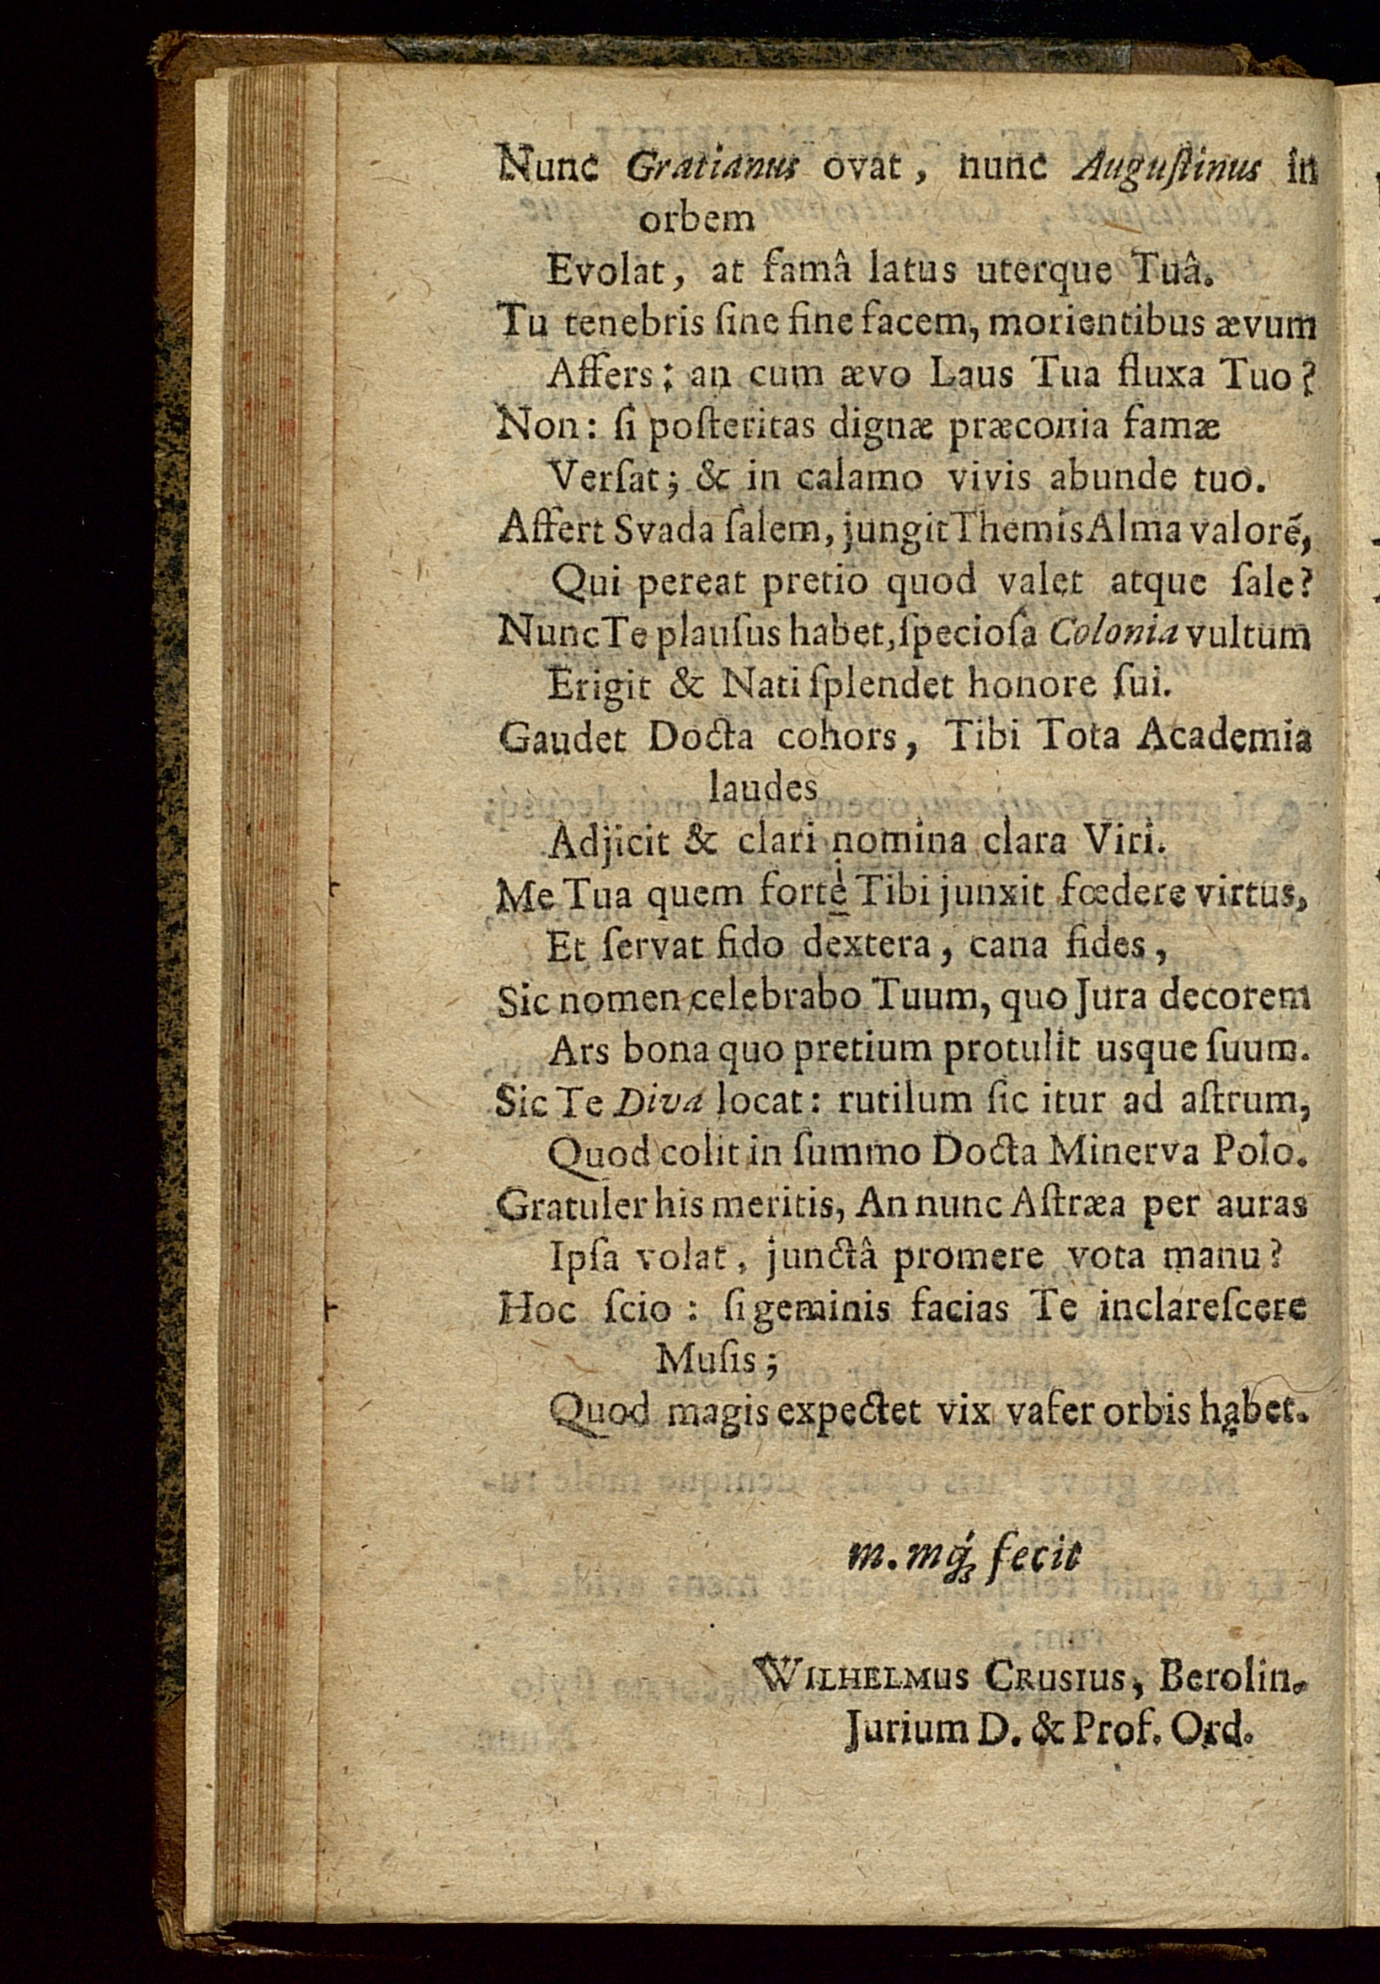 Nunc Gratianus ovat, nunc Auguſtinus in
orbem
Evolat, at famâ latus uterque Tuâ.
Tu tenebris ſine fine facem, morientibus ævum
Affers: an cum ævo Laus Tua fluxa Tuo?
Non: ſi poſteritas dignæ præconia famæ
Verſat; & in calamo vivis abunde tuo.
Affert Svada ſalem, jungit Themis Alma valorẽ,
Qui pereat pretio quod valet atque ſale?
Nunc Te plauſus habet, ſpecioſa Colonia vultum
Erigit & Nati ſplendet honore ſui.
Gaudet Docta cohors, Tibi Tota Academia
laudes
Adjicit & clari nomina clara Viri.
Me Tua quem fortè Tibi junxit fœdere virtus,
Et ſervat fido dextera, cana fides,
Sic nomen celebrabo Tuum, quo Jura decorem
Ars bona quo pretium protulit usque ſuum.
Sic Te Diva locat: rutilum ſic itur ad aſtrum,
Quod colit in ſummo Docta Minerva Polo.
Gratuler his meritis, An nunc Aſtræa per auras
Ipſa volat, junctâ promere vota manu?
Hoc ſcio: ſi geminis facias Te inclareſcere
Muſis;
Quod magis expectet vix vafer orbis habet.
m. mq́; fecit
WILHELMUS CRUSIUS, Berolin.
Jurium D. & Prof. Ord.